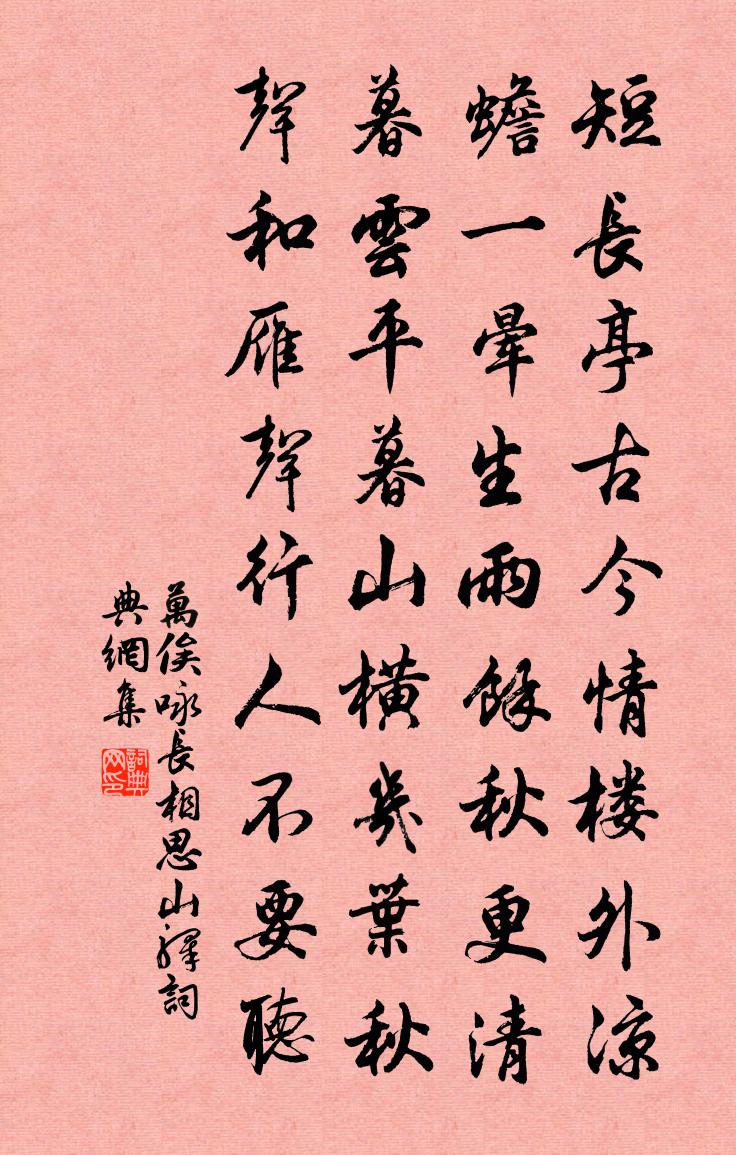 短長亭古今情楼外涼
蟾一暈生雨餘秋更清
暮雲平暮山横幾葉秋
聲和雁聲行人不要聽
萬俟咏長相思山驛詞
典網集
詞典网印